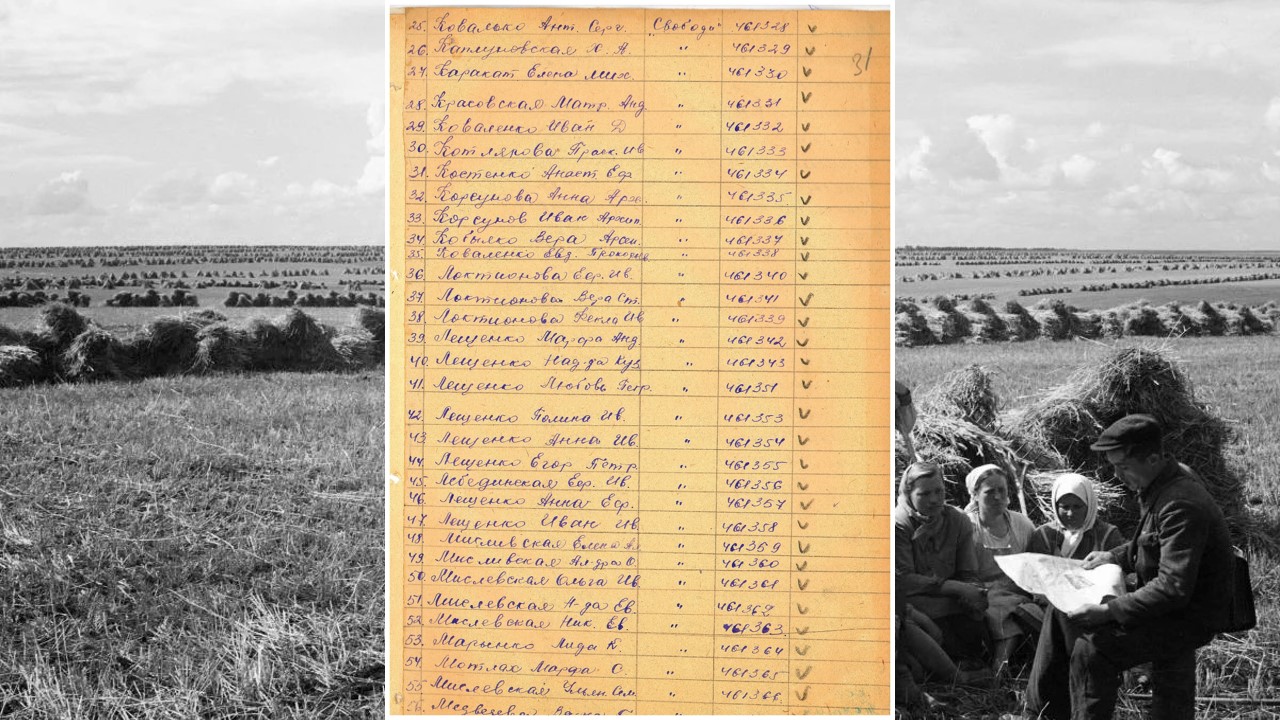 25. Ковалько Ант. Серг. "Свобода" 461328 v
31
26. Каплуновская Н. А. " 461329 v
27. Каракат Елена Мих. " 461330 v
28. Краковская Матр. Анд. " 461331 v
29. Коваленко Иван Д " 461332 v
30. Котлярова Праск. Ив " 461333 v
31. Костенко Анаст Еф " 461334 v
32. Корсунова Анна Арх. " 461335 v
33. Корсунов Иван Архип " 461336 v
34. Кобылко Вера Арсен. " 461337 v
35. Коваленко Евд. Прокоф. " 461338 v
36. Локтионова Ефр. Ив. " 461340 v
37. Локтионова Вера Ст. " 461341 v
38. Локтионова Фекла Ив " 461339 v
39. Лещенко Марфа Анд. " 461342 v
40. Лещенко Над-да Куз. " 461343 v
41. Лещенко Любовь Петр. " 461351 v
42. Лещенко Полина Ив. " 461353 v
43. Лещенко Анна Ив. " 461354 v
44. Лещенко Егор Петр. " 461355 v
45. Лебединская Ефр. Ив. " 461356 v
46. Лещенко Анна Еф. " 461357 v
47. Лещенко Иван Ив " 461358 v
48. Мислевская Елена " 461359 v
49. Мисливская Ал-дра О. " 461360 v
50. Мислевская Ольга Ив. " 461361 v
51. Мислевская Н-да Ев. " 461362 v
52. Мислевская Ник. Ев. " 461363. v
53. Марынко Лида К. " 461364 v
54. Мотлах Марфа С. " 461365 v
55 Мислевская Ульян " 461366 v
56. Медведева